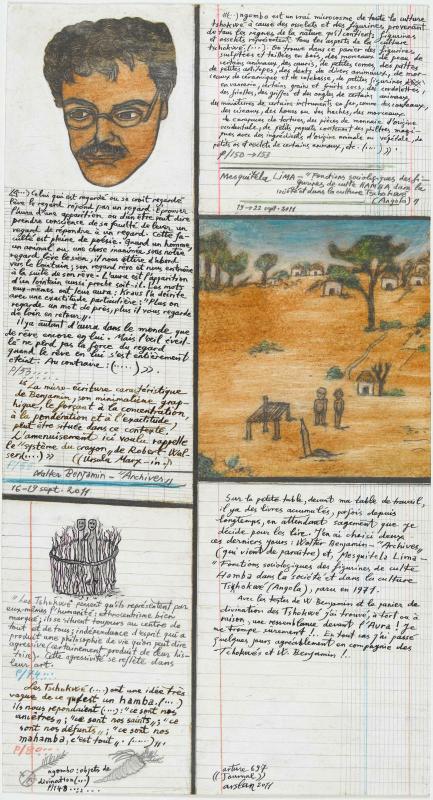 (((...) ngombo est un vrai microcosme de toute la culture
tshokwe à cause des osselets et des figurines, provenant
de tous les règnes de la nature (...) certaines figurines
et osselets représentent tous les aspects de la culture
tshokwe (...). On trouve dans ce panier des figurines
sculptées et taillées en bois, des morceaux de peau de
certains animaux, des cauris, de petites cornes, des pattes
de petites antilopes, des dents de divers animaux, de mor-
ceaux de céramique et de calebasse, de petites figurines
en vannerie, certains grains et fruits secs, des cordelettes,
des ficelles, des griffes et des ongles de certains animaux,
des miniatures de certains instruments en fer, comme des couteaux,
des ciseaux, des houes ou des haches, des morceaux
de carapaces de tortues, des pièces de monnaie d'origine
occidentale, de petits paquets contenant des philtres magi-
ques avec des ingrédients d'origine animale ou végétale, de
petits os et osselets de certains animaux, etc. (...) >>
P/150 → 153
Mesquitela Lima - "Fonctions sociologiques des fi-
gurines de culte HAMBA dans la
société et dans la culture Tshokwe
(Angola)"
19→22 sept. 2011
(...) Celui qui est regardé ou se croit regardé
lève le regard, répond par un regard. Éprouver
l'aura d'une apparition ou d'un être, veut dire
prendre conscience de sa faculté de lever un
regard, de répondre à un regard. Cette fa-
culté est pleine de poésie. Quand un homme,
un animal ou une chose inanimée, sous notre
regard lève le sien, il nous attire d'abord
vers le lointain; son regard rêve et nous entraîne
à la suite de son rêve. L'aura est l'apparition
d'un lointain aussi proche soit-il. Les mots
eux-mêmes ont leur aura; Kraus l'a décrite
avec une exactitude particulière: "Plus on
regarde un mot de près, plus il vous regarde
de loin en retour".
Il y a autant d'aura dans le monde que
de rêve encore en lui. Mais l'œil éveil-
lé ne perd pas la force du regard
quand le rêve en lui s'est entièrement
éteint. Au contraire: (.....) >>.
P/53....
"La micro-écriture caractéristique
de Benjamin, son minimalisme grap-
hique, le forçant à la concentration,
à la pondération et à l'exactitude,
peut être située dans ce contexte.
L'amenuisement ici voulu rappelle
le "système du crayon", de Robert Wal-
ser (...) >> (Ursula Marx - in)
Walter Benjamin - "Archives"
16-19 sept. 2011
"Les Tshokwe pensent qu'ils représentent par
eux-mêmes l'humanité; ethnocentrisme bien
marqué; ils se situent toujours au centre de
tout et de tous; indépendance d'esprit qui a
produit une philosophie de vie qu'on peut dire
agressive (certainement produit de leur his-
toire). Cette agressivité se reflète dans
leur art.
P/74...
Les Tshokwe (...) ont une idée très
vague de ce qu'est un hamba. (...)
Ils nous répondaient (...): "ce sont nos
ancêtres"; "ce sont nos saints"; "ce
sont nos défunts"; "ce sont nos
mahamba, c'est tout". (.....)".
P/80...
ngombo: objets de
divination (...)
P/148......
Sur la petite table, devant ma table de travail,
il y a des livres accumulés, parfois depuis
longtemps, en attendant sagement que je
décide pour les lire. J'en ai choisi deux
ces derniers jours: Walter Benjamin - "Archives"
(qui vient de paraître) et, Mesquitela Lima -
"Fonctions sociologiques des figurines de culte
Hamba dans la société et dans la culture
Tshokwe" (Angola), paru en 1971.
Avec les textes de W. Benjamin et le panier de
divination des Tshokwe j'ai trouvé, à tort ou à
raison, une ressemblance devant l'"Aura"! Je
me trompe surement!. En tout cas j'ai passé
quelques jours agréablement en compagnie des
Tchokwés et W. Benjamin!.
arture 697
((Journal))
arslan 2011